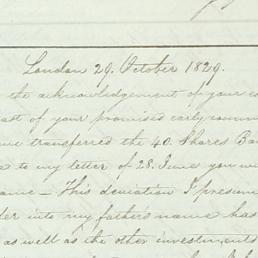 London 29. October 1829.
the acknowledgement of your
of your promised early
transferred the 40. Shares
to my letter of 28. June you
— This deviation I presume
into my father's name has
as well as the other investments